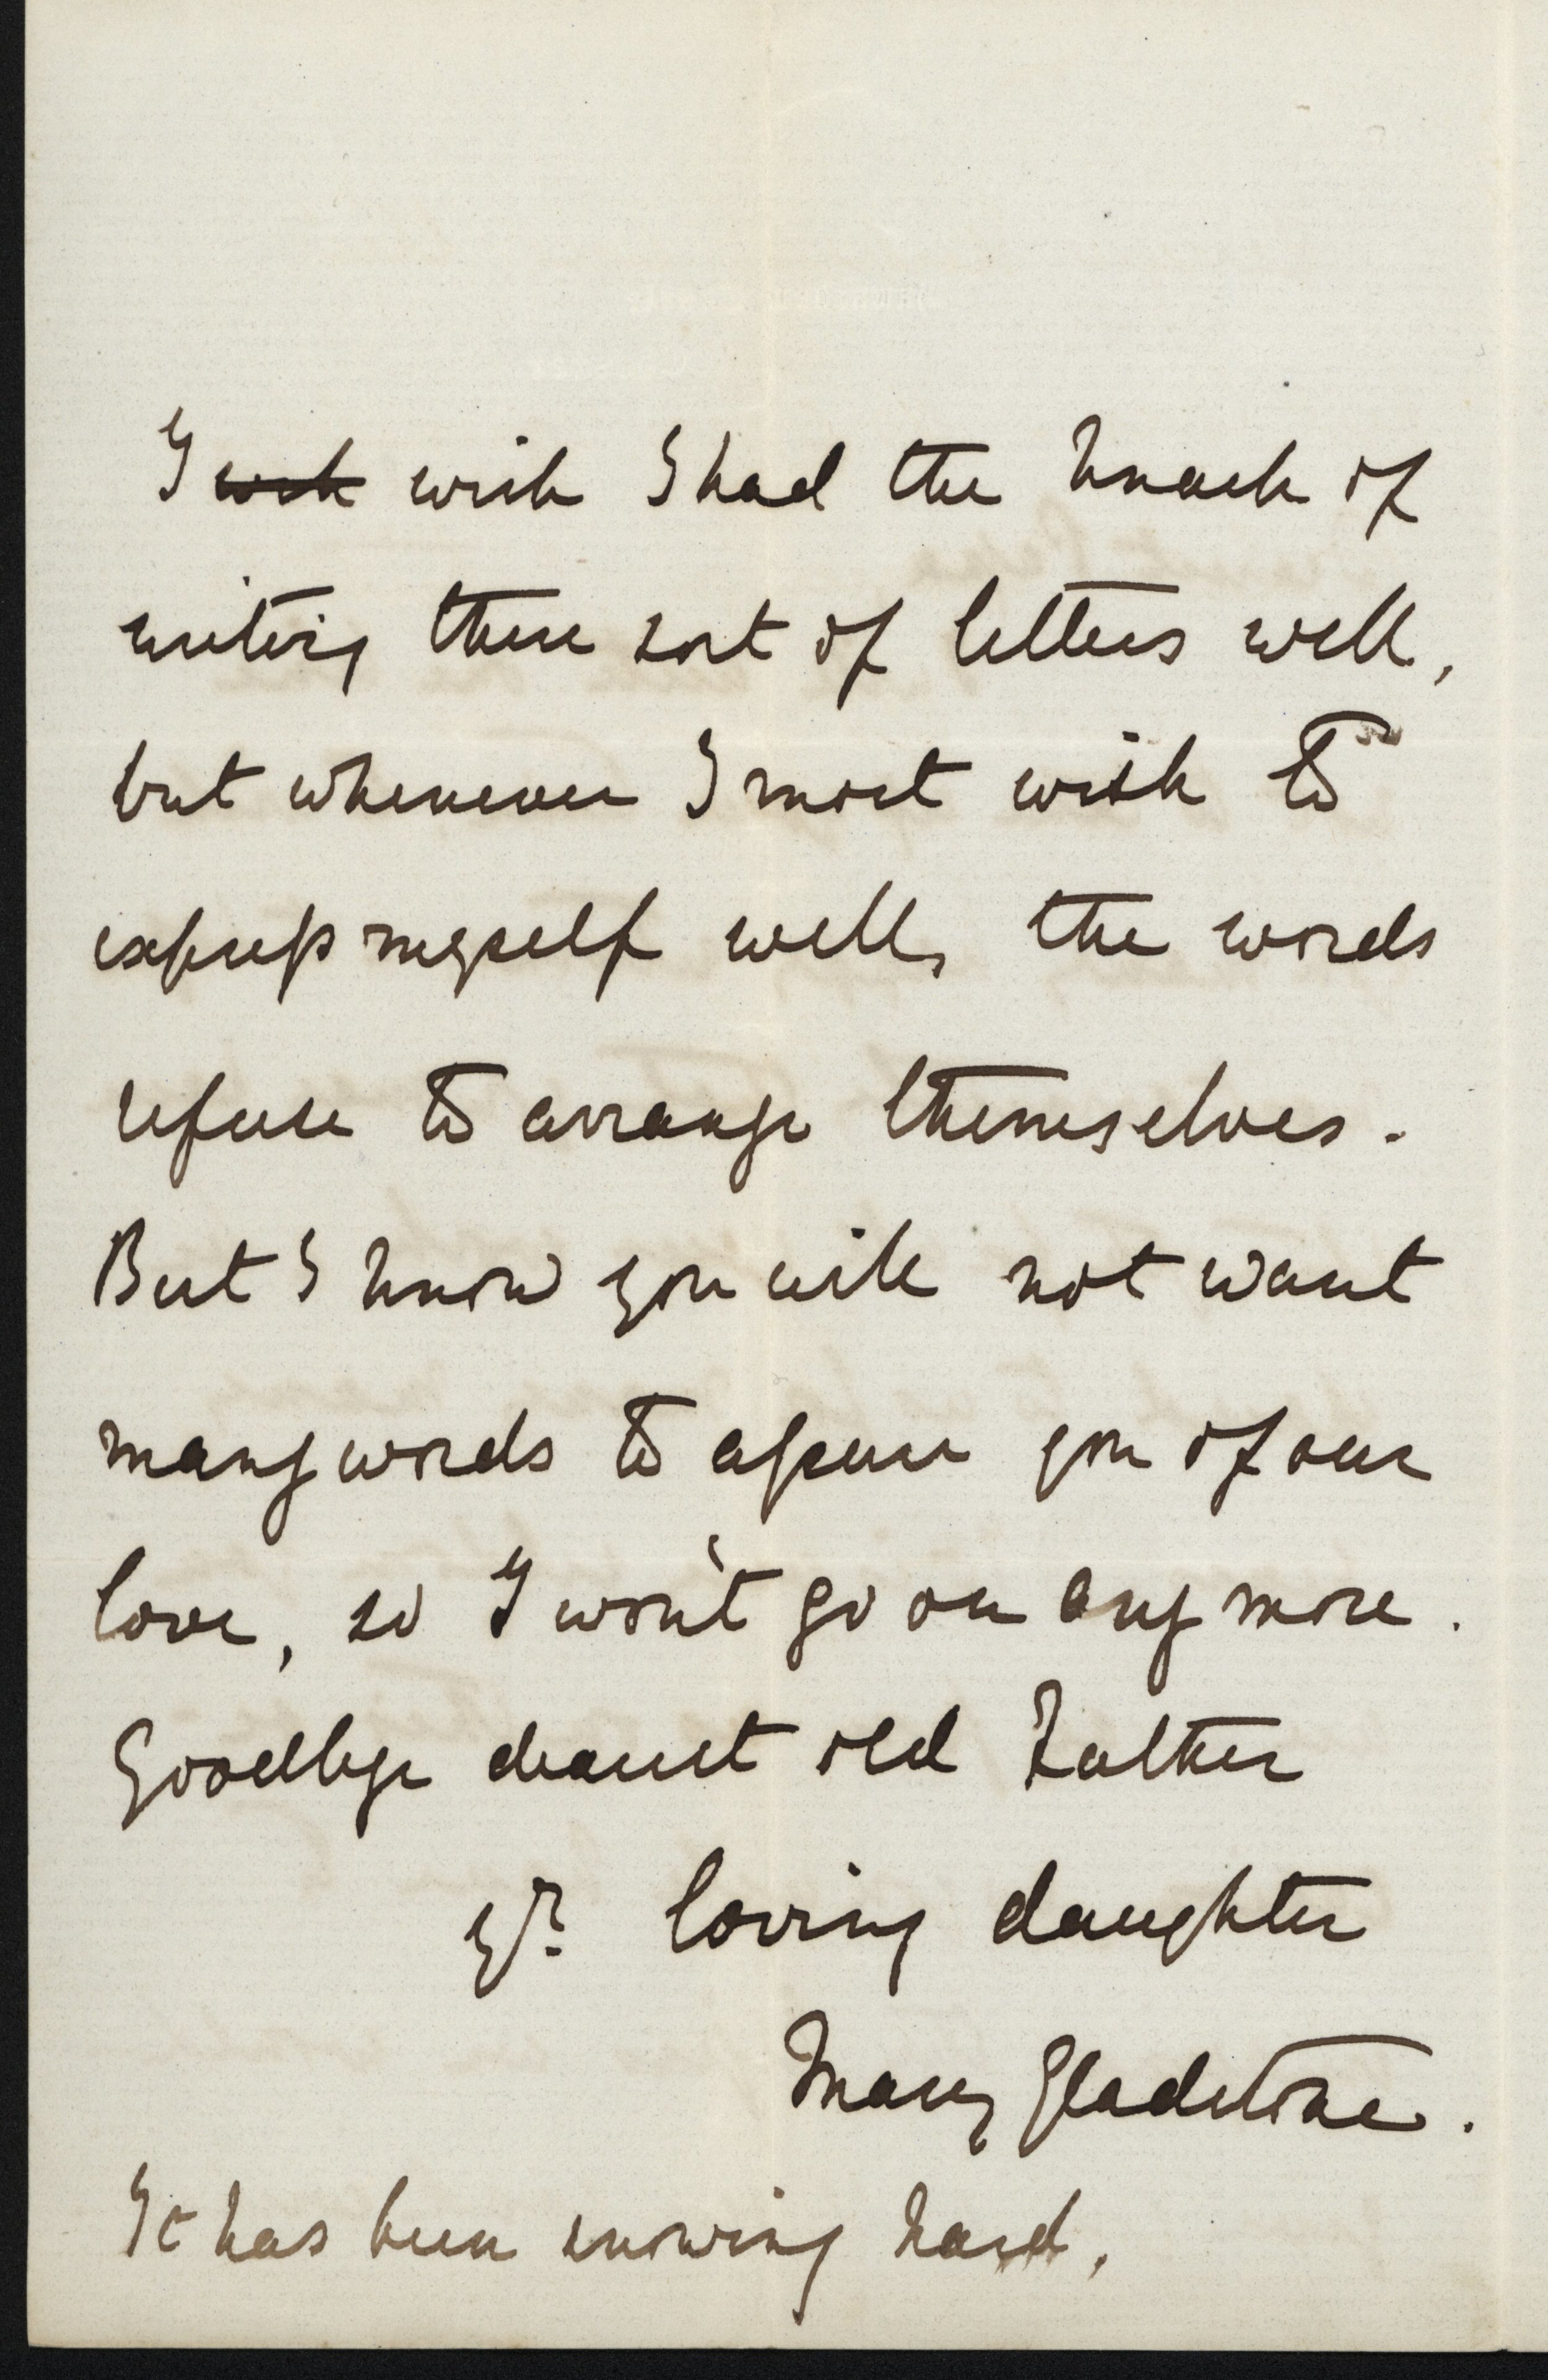 I ~~wish~~ wish I had the knack of
writing these sort of letters well,
but whenever I most wish to
express myself well, the words
refuse to arrange themselves.
But I know you will not want
many words to assure you of our
love, so I won't go on any more.
Goodbye dearest old Father
yr. loving daughter
Mary Gladstone.
It has been snowing hard,